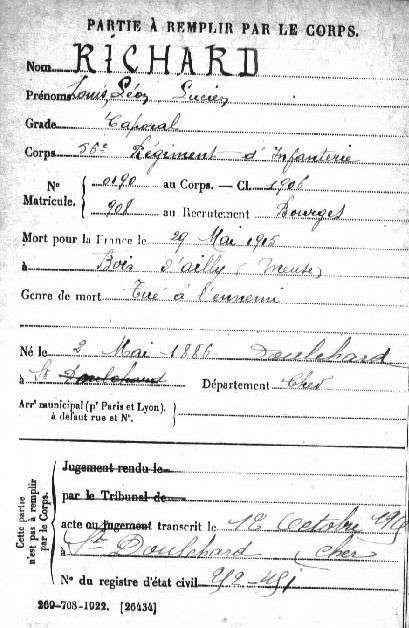 PARTIE À REMPLIR PAR LE CORPS.
Nom RICHARD
Prénoms Louis, Léon, Lucien
Grade Caporal
Corps 56e Régiment d'Infanterie
N° Matricule. { 0190 au Corps. — Cl. 1906
908 au Recrutement Bourges
Mort pour la France le 29 Mai 1915
à Bois d'ailly (Meuse)
Genre de mort Tué à l'ennemi
Né le 2 Mai 1886 Doulchard
à St Doulchard Département Cher
Arrt municipal (pr Paris et Lyon),
à défaut rue et N°.
Cette partie n'est pas à remplir par le Corps.
Jugement rendu le
par le Tribunal de
acte ou jugement transcrit le 12 Octobre
à St Doulchard Cher
N° du registre d'état civil
269-708-1922. [26434]